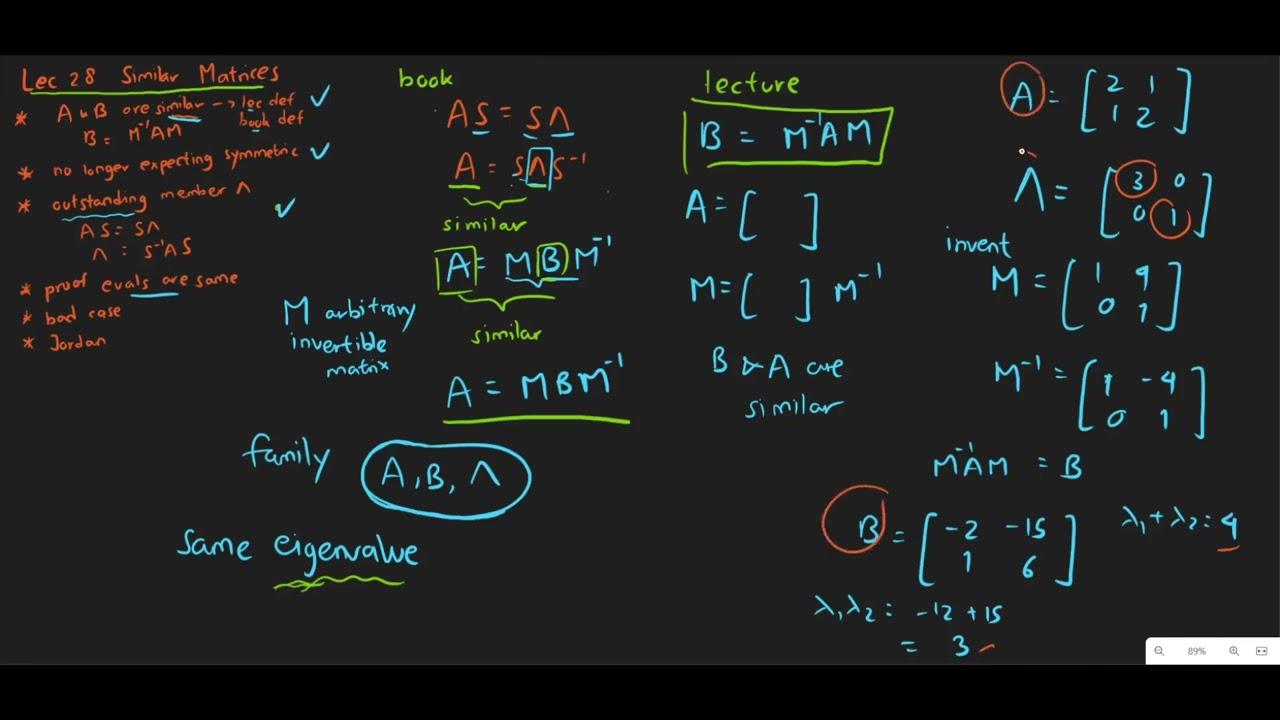 Lec 28 Similar Matrices
* A & B are similar → lec def ✓
book def
B = M⁻¹AM
* no longer expecting symmetric ✓
* outstanding member Λ ✓
AS = SΛ
Λ = S⁻¹AS
* proof evals are same
* bad case
* Jordan
book
AS = SΛ
A = SΛS⁻¹
similar
A = MBM⁻¹
similar
M arbitrary
invertible
matrix
A = MBM⁻¹
family A, B, Λ
same eigenvalue
lecture
B = M⁻¹AM
A = [ ]
M = [ ] M⁻¹
B & A are
similar
A = [2 1
1 2]
Λ = [3 0
0 1]
invent
M = [1 4
0 1]
M⁻¹ = [1 -4
0 1]
M⁻¹AM = B
B = [-2 -15
1 6]
λ₁+λ₂ = 4
λ₁λ₂ = -12 + 15
= 3
89%